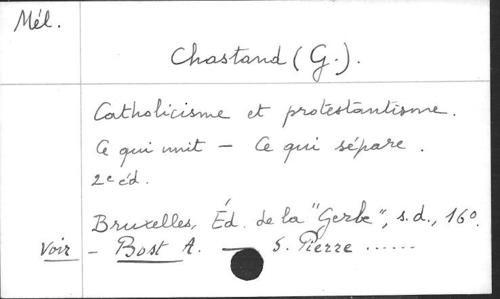 Mél.
Chastand (G.).
Catholicisme et protestantisme.
Ce qui unit — Ce qui sépare.
2e éd.
Bruxelles, Éd. de la "Gerbe", s.d., 16º.
Voir — Bost A. — S. Pierre ......